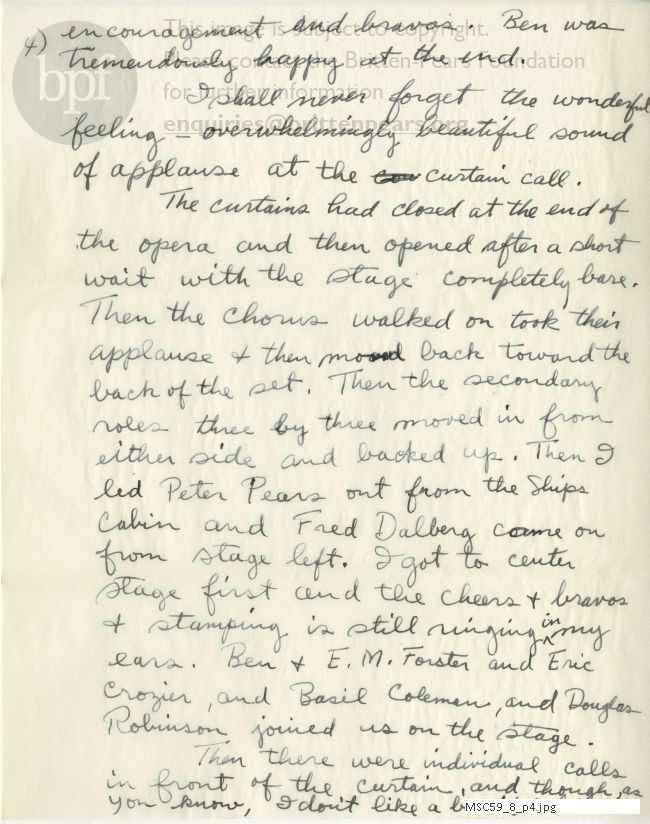 4) encouragement and bravos. Ben was
tremendously happy at the end.
I shall never forget the wonderful
feeling – overwhelmingly beautiful sound
of applause at the curtain call.
The curtains had closed at the end of
the opera and then opened after a short
wait with the stage completely bare.
Then the chorus walked on took their
applause & then moved back toward the
back of the set. Then the secondary
roles three by three moved in from
either side and backed up. Then I
led Peter Pears out from the Ships
Cabin and Fred Dalberg came on
from stage left. I got to center
stage first and the cheers & bravos
& stamping is still ringing in my
ears. Ben & E. M. Forster and Eric
Crozier, and Basil Coleman, and Douglas
Robinson joined us on the stage.
Then there were individual calls
in front of the curtain, and though, as
you know, I don't like a
MSC59_8_p4.jpg
bpf
This image is subject to copyright.
Please contact the Britten-Pears Foundation
for further information
enquiries@brittenpears.org